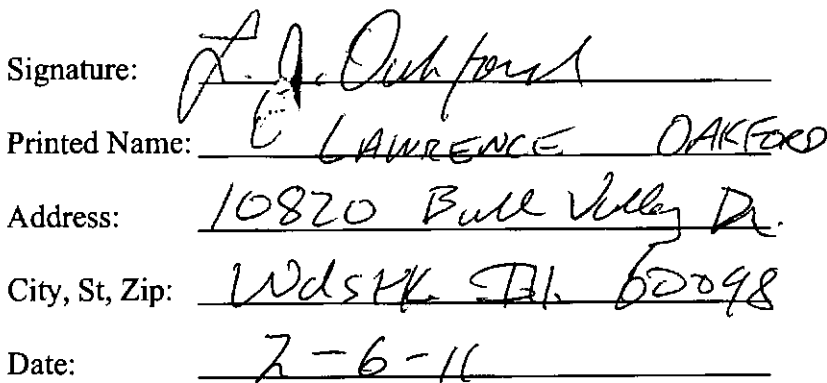 Signature: L. J. Oakford
Printed Name: LAWRENCE OAKFORD
Address: 10820 Bull Valley Dr.
City, St, Zip: Wdstk. Ill. 60098
Date: 2-6-11